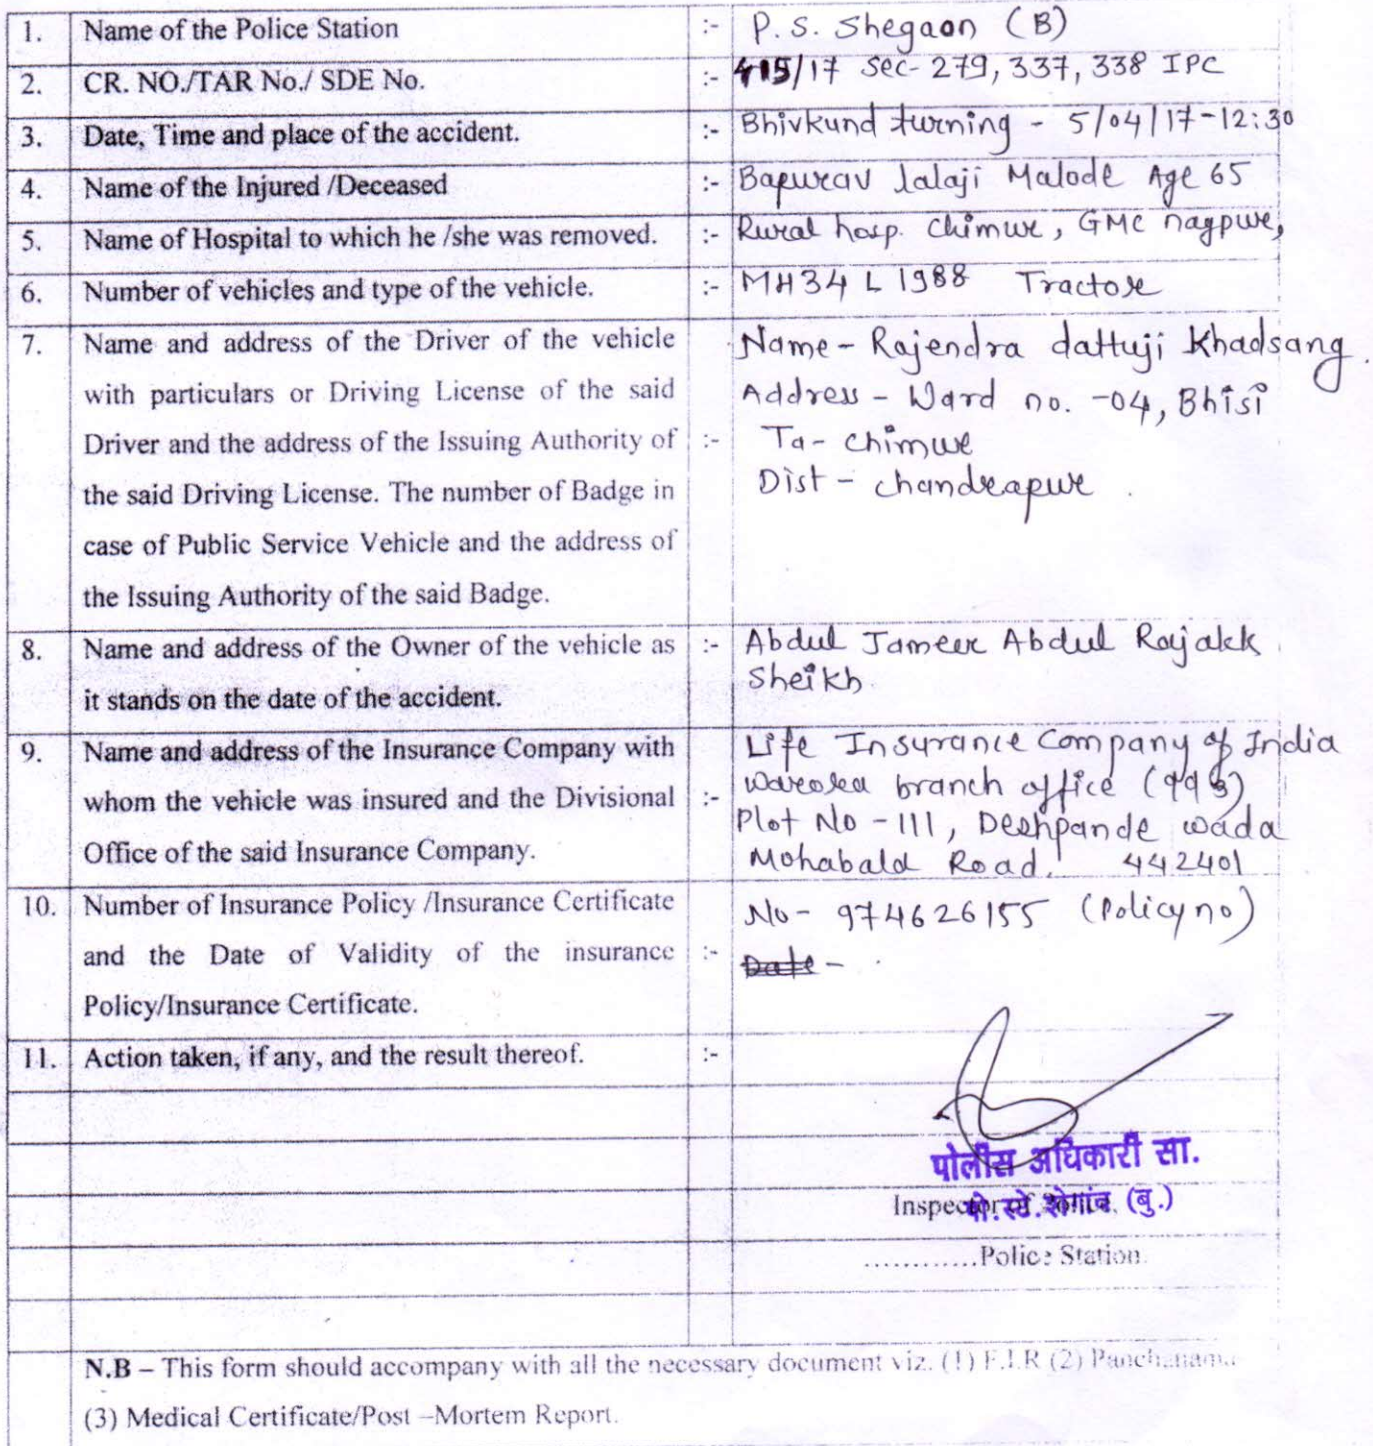 1. Name of the Police Station :- P. S. Shegaon (B)
2. CR. NO./TAR No./ SDE No. :- 415/17 Sec- 279, 337, 338 IPC
3. Date, Time and place of the accident. :- Bhivkund turning - 5/04/17-12:30
4. Name of the Injured /Deceased :- Bapurav lalaji Malode Age 65
5. Name of Hospital to which he /she was removed. :- Rural hosp. Chimur, GMC nagpur,
6. Number of vehicles and type of the vehicle. :- MH34 L 1988 Tractor
7. Name and address of the Driver of the vehicle
with particulars or Driving License of the said
Driver and the address of the Issuing Authority of :-
the said Driving License. The number of Badge in
case of Public Service Vehicle and the address of
the Issuing Authority of the said Badge.
Name - Rajendra dattuji Khadsang.
Address - Ward no. -04, Bhisi
Ta- chimur
Dist - chandrapur.
8. Name and address of the Owner of the vehicle as :-
it stands on the date of the accident.
Abdul Jameer Abdul Rajakk
Sheikh.
9. Name and address of the Insurance Company with
whom the vehicle was insured and the Divisional :-
Office of the said Insurance Company.
Life Insurance Company of India
Warora branch office
Plot No - 111, Deshpande wada
Mohabala Road. 442401
10. Number of Insurance Policy /Insurance Certificate
and the Date of Validity of the insurance :-
Policy/Insurance Certificate.
No- 974626155 (Policy no)
Date -
11. Action taken, if any, and the result thereof. :-
पोलीस अधिकारी सा.
Inspector of Police.
पो.स्टे.शेगांव (बु.)
............Police Station.
N.B – This form should accompany with all the necessary document viz. (1) F.I.R (2) Panchanama
(3) Medical Certificate/Post –Mortem Report.